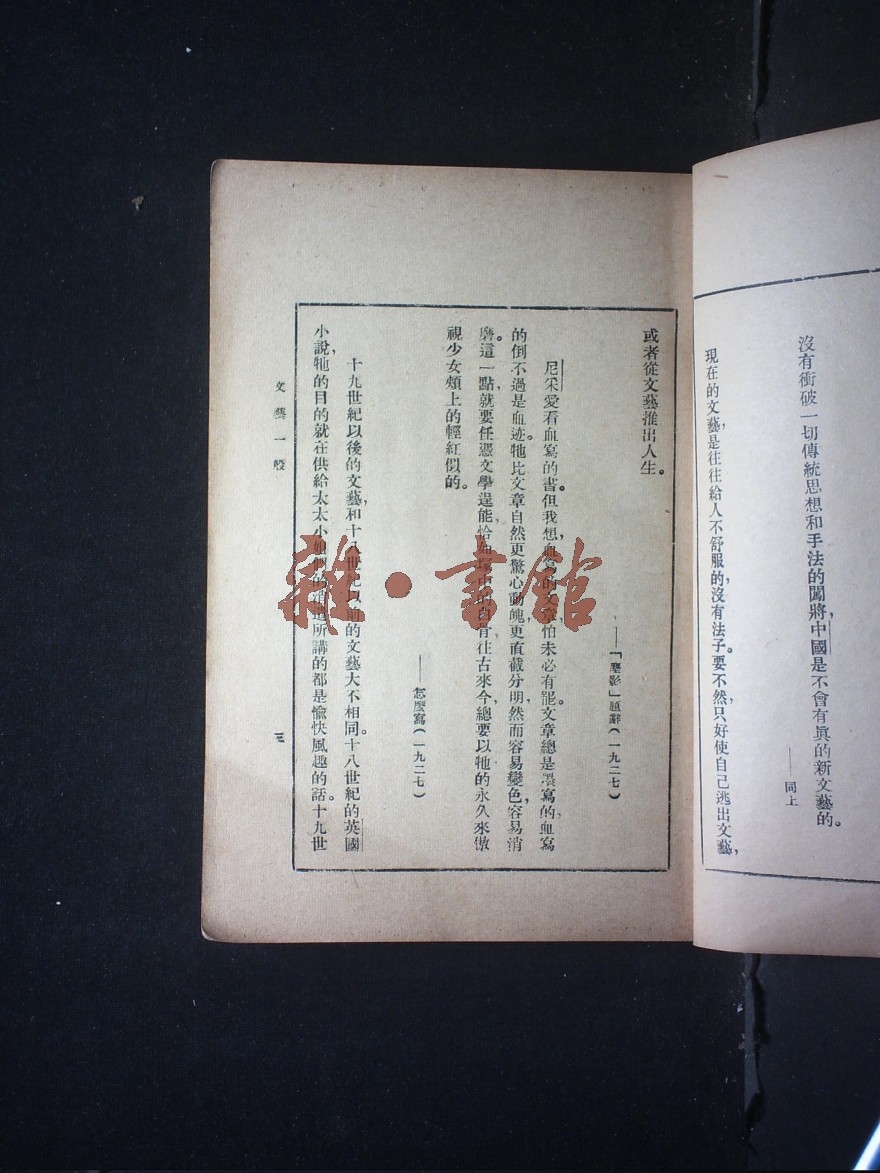 沒有衝破一切傳統思想和手法的闖將，中國是不會有眞的新文藝的。
——同上
現在的文藝，是往往給人不舒服的，沒有法子。要不然，只好使自己逃出文藝，
或者從文藝推出人生。
——「塵影」題辭（一九二七）
尼采愛看血寫的書。但我想，血寫的文章，怕未必有罷。文章總是墨寫的，血寫
的倒不過是血迹。牠比文章自然更驚心動魄，更直截分明，然而容易變色，容易消
磨。這一點，就要任憑文學逞能，恰如塚中的白骨，往古來今，總要以牠的永久來傲
視少女頰上的輕紅似的。
——怎麼寫（一九二七）
十九世紀以後的文藝，和十八世紀以前的文藝大不相同。十八世紀的英國
小說，牠的目的就在供給太太小姐們的消遣，所講的都是愉快風趣的話。十九世
文藝一般
三
雜·書館